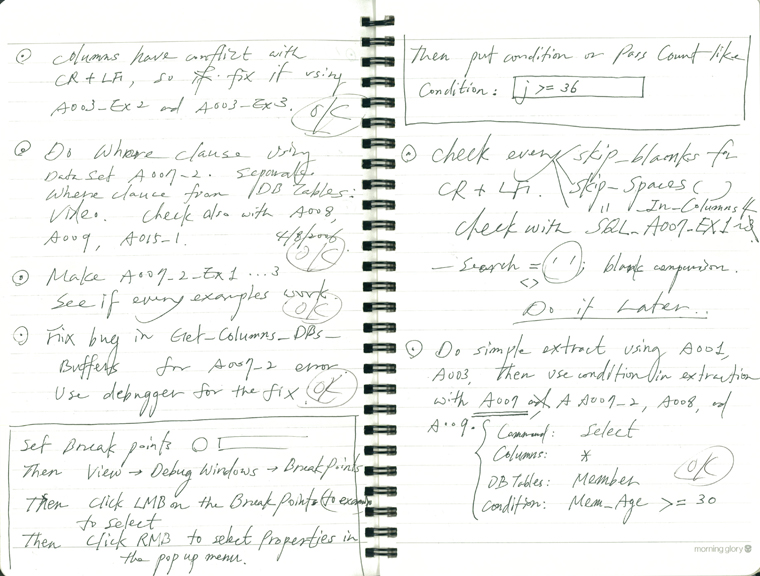 columns have conflict with
CR + LFi, so fix it using
A003-Ex2 and A003-Ex3. O/C
Do Where clause using
Data Set A007-2. Separate
Where clause from DB Tables:
Video. Check also with A008,
A009, A015-1. 4/8/2006
O/C
Make A007-2-Ex1 ...3
See if every examples work. O/C
Fix bug in Get-Columns_DBs_
Buffers for A007-2 error.
Use debugger for the fix. O/C
Set Break points
Then View → Debug Windows → Break Points
Then click LMB on the Break Points (to example
to select
Then click RMB to select Properties in
the pop up menu.
Then put condition or Pass Count like
Condition: j >= 36
check every skip_blanks for
CR + LFi. Skip_Spaces ( )
" In_Columns
check with SQL_A007-EX1~3
— Search = ( ' ' ; blank comparison.
<>
Do it Later..
Do simple extract using A001,
A003, Then use condition in extraction
with A007 A007-2, A008, and
A009.
Command: Select
Columns: *
DB Tables: Member
Condition: Mem_Age >= 30
O/C
morning glory